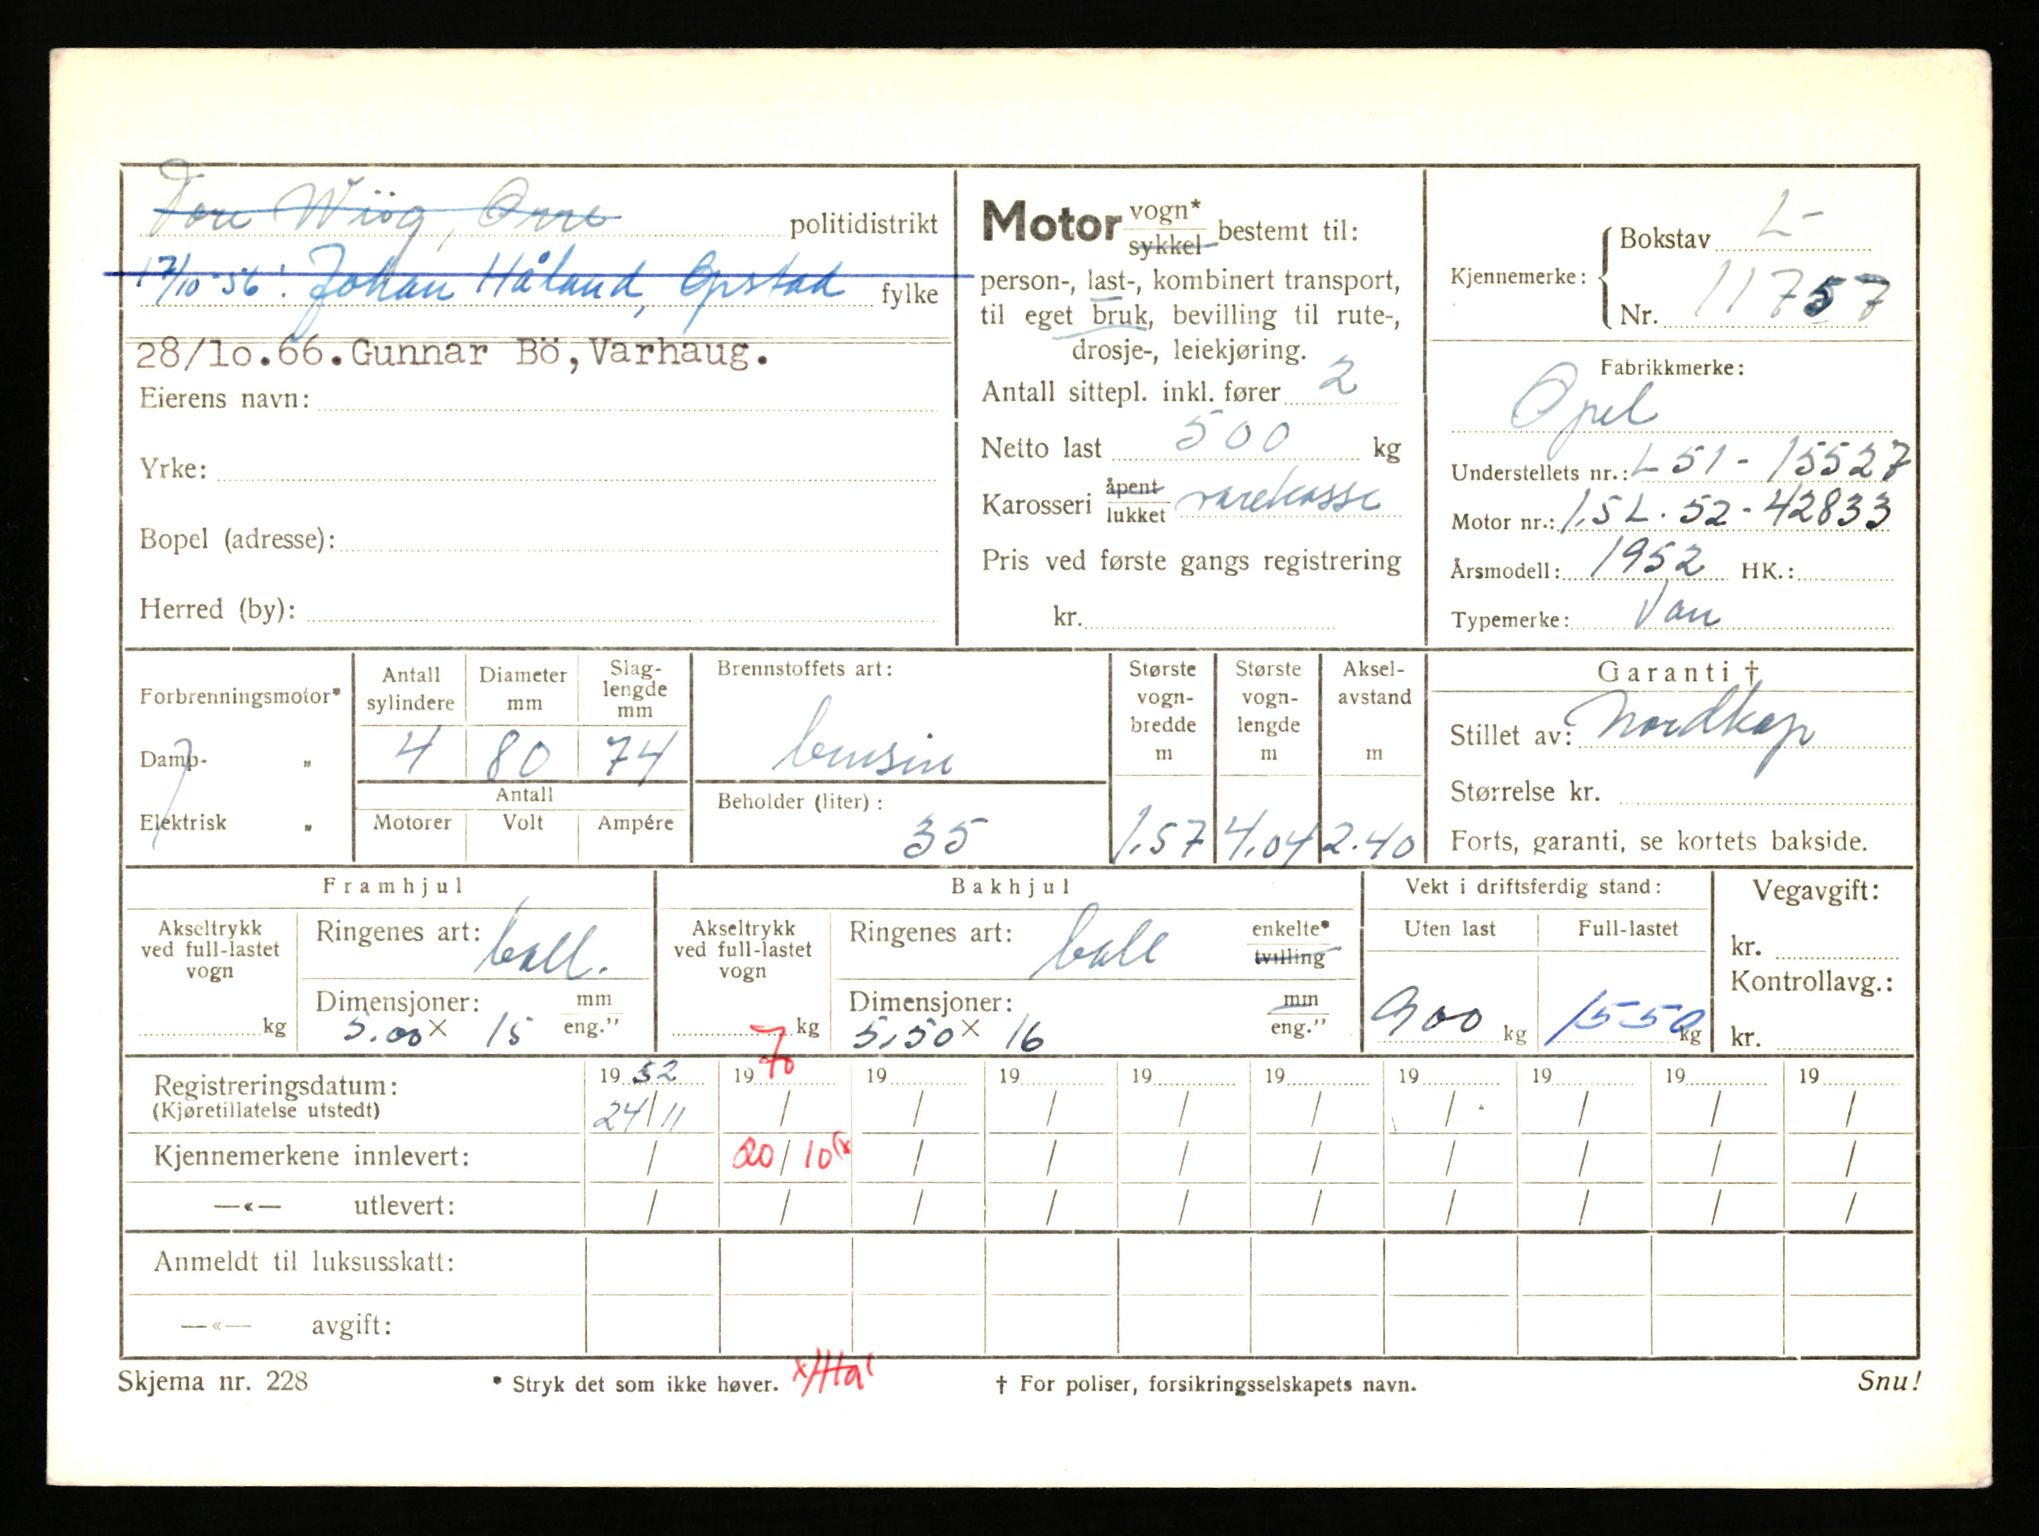 Tore Wiig, Orre politidistrikt
17/10-56: Johan Håland, Opstad fylke
28/10.66.Gunnar Bö,Varhaug.
Eierens navn:
Yrke:
Bopel (adresse):
Herred (by):
Motor vogn* sykkel bestemt til:
person-, last-, kombinert transport,
til eget bruk, bevilling til rute-,
drosje-, leiekjøring.
Antall sittepl. inkl. fører 2
Netto last 500 kg
Karosseri åpent lukket varekasse
Pris ved første gangs registrering
kr.
Kjennemerke: Bokstav L-
Nr. 11757
Fabrikkmerke:
Opel
Understellets nr.: L51-15527
Motor nr.: 1,5L.52-42833
Årsmodell: 1952 HK.:
Typemerke: Van
Forbrenningsmotor*
Damp- „
Elektrisk „
Antall sylindere
Diameter mm
Slag-lengde mm
4 80 74
Antall
Motorer Volt Ampére
Brennstoffets art:
bensin
Beholder (liter):
35
Største vogn-bredde m
1.57
Største vogn-lengde m
4.04
Aksel-avstand m
2.40
Garanti †
Stillet av: Nordkap
Størrelse kr.
Forts, garanti, se kortets bakside.
Framhjul
Akseltrykk ved full-lastet vogn
kg
Ringenes art: ball.
Dimensjoner: mm eng."
5.00 x 15
Bakhjul
Akseltrykk ved full-lastet vogn
kg
Ringenes art: ball enkelte* tvilling
Dimensjoner: mm eng."
5,50 x 16
Vekt i driftsferdig stand:
Uten last Full-lastet
900 kg 1550 kg
Vegavgift:
kr.
Kontrollavg.:
kr.
Registreringsdatum: 19 52 19 70 19 19 19 19 19 19 19 19
(Kjøretillatelse utstedt) 24/11 / / / / / / / / /
Kjennemerkene innlevert: / 20/10 (x / / / / / / / /
—«— utlevert: / / / / / / / / / /
Anmeldt til luksusskatt:
—«— avgift:
Skjema nr. 228 * Stryk det som ikke høver. x/Ha' † For poliser, forsikringsselskapets navn. Snu!